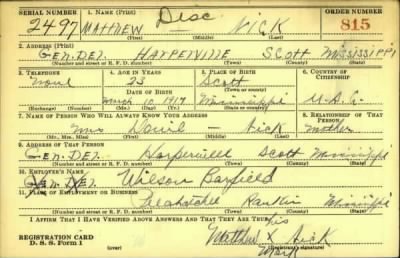 SERIAL NUMBER 1. NAME (Print) Disc ORDER NUMBER
2497 MATTHEW — NICK 815
(First) (Middle) (Last)
2. ADDRESS (Print)
GEN. DEL. HARPERVILLE SCOTT MISSISSIPPI
(Number and street or R. F. D. number) (Town) (County) (State)
3. TELEPHONE 4. AGE IN YEARS 5. PLACE OF BIRTH 6. COUNTRY OF CITIZENSHIP
None 23 Scott
DATE OF BIRTH
March 10, 1917 Mississippi U.S.
(Exchange) (Number) (Mo.) (Day) (Yr.) (State or country)
7. NAME OF PERSON WHO WILL ALWAYS KNOW YOUR ADDRESS 8. RELATIONSHIP OF THAT PERSON
Mrs — Nick Mother
(Mr., Mrs., Miss) (First) (Middle) (Last)
9. ADDRESS OF THAT PERSON
Gen. Del. Harperville Scott Mississippi
(Number and street or R. F. D. number) (Town) (County) (State)
10. EMPLOYER'S NAME
Gen. Del. Wilson Barfield
11. PLACE OF EMPLOYMENT OR BUSINESS
Pelahatchie Rankin Mississippi
(Number and street or R. F. D. number) (Town) (County) (State)
I AFFIRM THAT I HAVE VERIFIED ABOVE ANSWERS AND THAT THEY ARE TRUE.
his
REGISTRATION CARD Matthew X Nick
D. S. S. Form 1 (over) (Registrant's signature)
Mark